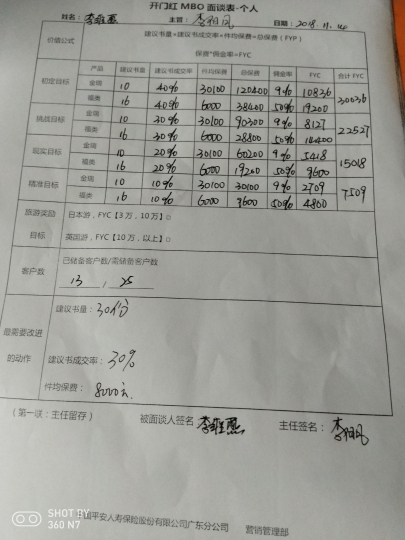 开门红 MBO 面谈表-个人
姓名: 主管: 日期: 2018.11.
价值公式 建议书量×建议书成交率×件均保费=总保费 (FYP)
保费*佣金率=FYC
产品 建议书量 建议书成交率 件均保费 总保费 佣金率 FYC 合计 FYC
初定目标 金瑞 10 40% 30100 120400 9% 10836 30036
福类 16 40% 6000 38400 50% 19200
挑战目标 金瑞 10 30% 30100 90300 9% 8127 22527
福类 16 30% 6000 28800 50% 14400
现实目标 金瑞 10 20% 30100 60200 9% 5418 15018
福类 16 20% 6000 19200 50% 9600
精准目标 金瑞 10 10% 30100 30100 9% 2709 7509
福类 16 10% 6000 9600 50% 4800
旅游奖励 日本游, FYC【3万, 10万】□
目标 英国游, FYC【10万, 以上】□
客户数 已储备客户数/需储备客户数
13 / 25
最需要改进的动作
建议书量: 30份
建议书成交率: 30%
件均保费: 8000元
(第一联: 主任留存) 被面谈人签名: 主任签名:
中国平安人寿保险股份有限公司广东分公司 营销管理部
SHOT BY
360 N7